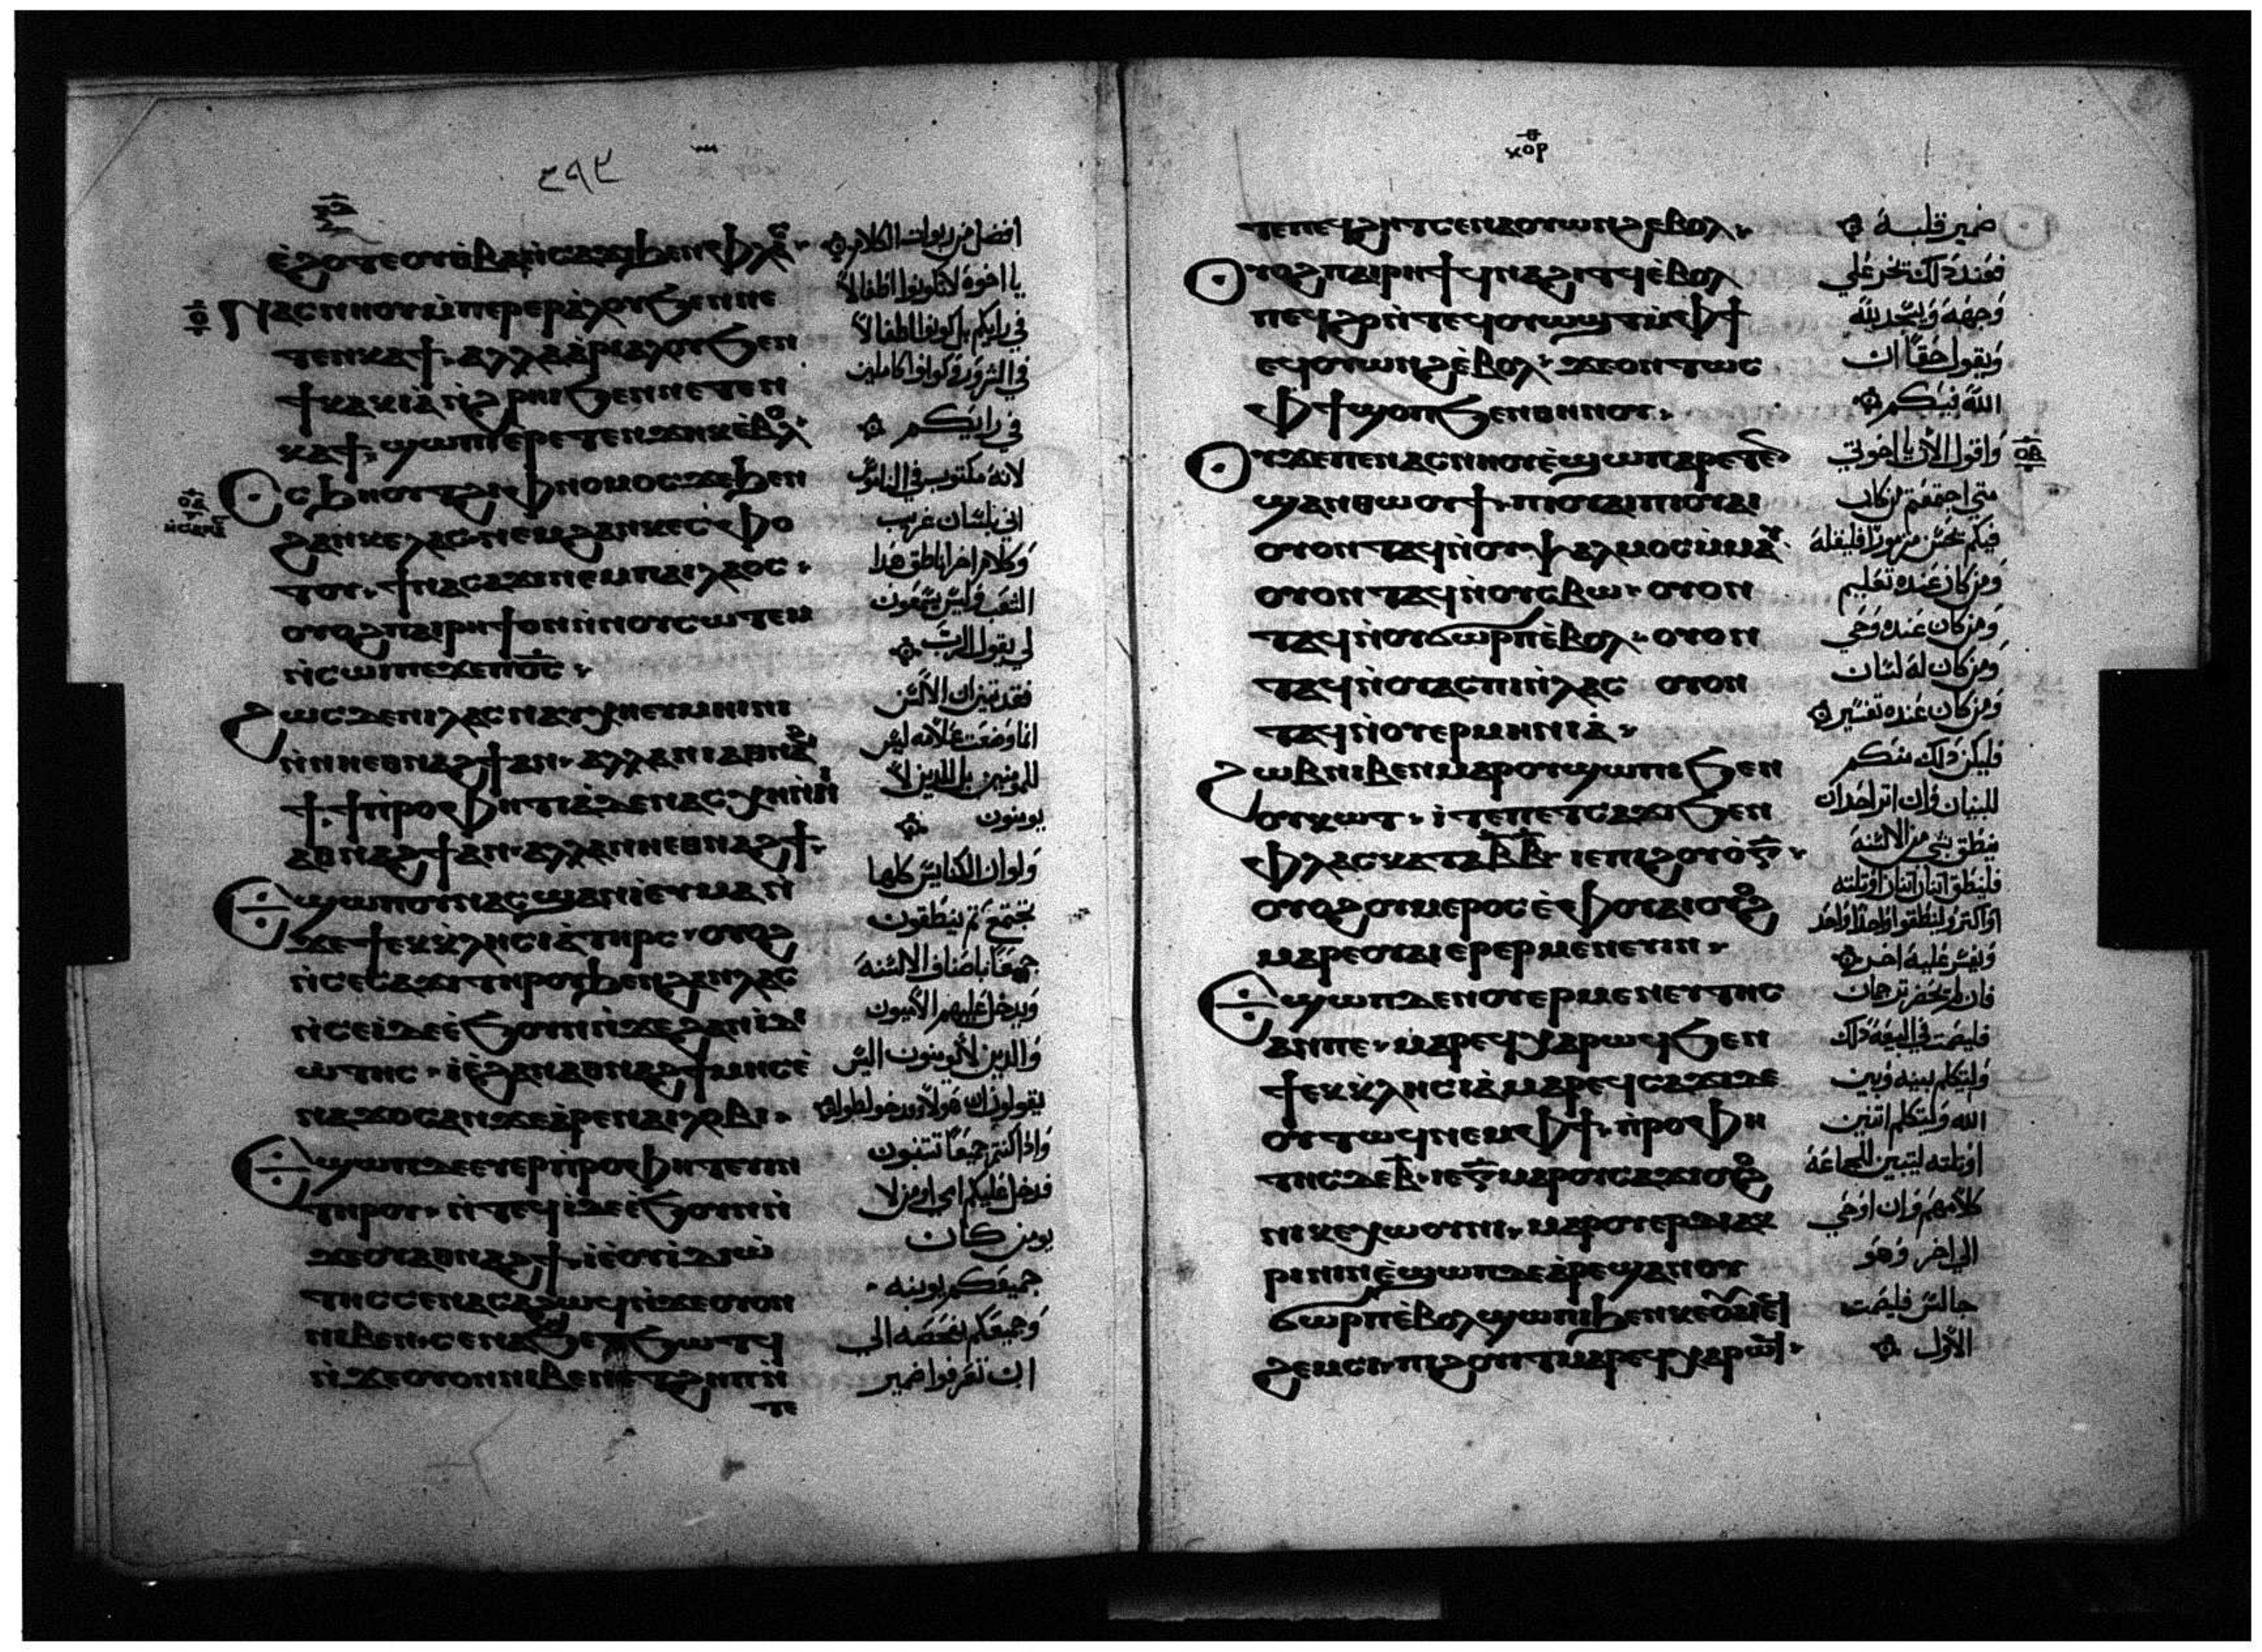 ⲉ̀ϩⲟⲧⲉⲟⲩⲑ̀ⲃⲁⲛ̀ⲥⲁϫⲓϧⲉⲛⲫⲗⲁⲥ
ⲛⲁⲥⲛⲏⲟⲩⲙ̀ⲡⲉⲣⲉⲣⲁ̀ⲗⲟⲩϧⲉⲛⲛⲉ
ⲧⲉⲛⲕⲁϯ ⲁⲗⲗⲁⲁ̀ⲣⲓⲁⲗⲟⲩϧⲉⲛ
ϯⲕⲁⲕⲓⲁ̀ ⲛ̀ϩⲣⲏⲓϧⲉⲛⲛⲉⲧⲉⲛ
ⲕⲁϯ ϣⲱⲡⲓⲉ̀ⲣⲉⲧⲉⲛϫⲏⲕⲉ̀ⲃⲟⲗ
ⲥϧⲏⲟⲩⲧϩⲓⲫⲛⲟⲙⲟⲥϫⲉϧⲉⲛ
ϩⲁⲛⲕⲉⲗⲁⲥ ⲛⲉⲙϩⲁⲛⲕⲉⲥ̀ⲫⲟ
ⲧⲟⲩ ϯⲛⲁⲥⲁϫⲓⲛⲉⲙⲡⲁⲓⲗⲁⲟⲥ
ⲟⲩⲟϩⲡⲁⲓⲣⲏϯⲟⲛⲛ̀ⲛⲟⲩⲥⲱⲧⲉⲙ
ⲛ̀ⲥⲱⲓⲡⲉϫⲉⲡⲟ̅ⲥ̅
ϩⲱⲥⲇⲉⲛⲓⲗⲁⲥⲛⲁⲩⲭⲏⲉⲩⲙⲏⲓⲛⲓ
ⲛ̀ⲛⲏⲉⲑⲛⲁϩϯⲁⲛ ⲁⲗⲗⲁⲛⲓⲁⲑⲛⲁϩ
ϯ ϯⲡ̀ⲣⲟⲫⲏⲧⲓⲁ̀ⲇⲉⲛⲁⲥⲭⲏⲛ̀ⲛⲓ
ⲁⲑⲛⲁϩϯⲁⲛ ⲁⲗⲗⲁⲛⲏⲉⲑⲛⲁϩϯ
ⲉϣⲱⲡⲟⲩⲛⲁⲥϣⲁⲛⲓ̀ⲉⲩⲙⲁⲛ̀
ϫⲉϯⲉⲕⲕ̀ⲗⲏⲥⲓⲁ̀ⲧⲏⲣⲥ ⲟⲩⲟϩ
ⲛ̀ⲥⲉⲥⲁϫⲓⲧⲏⲣⲟⲩϧⲉⲛϩⲁⲛⲗⲁⲥ
ⲛ̀ⲥⲉⲓ̀ⲇⲉⲉ̀ϧⲟⲩⲛⲛ̀ϫⲉϩⲁⲛⲓⲇⲓ
ⲱ̀ⲧⲏⲥ ⲓⲉ̀ϩⲁⲛⲁⲑⲛⲁϩϯⲙⲏⲥⲉ̀
ⲛⲁϫⲟⲥⲁⲛϫⲉⲁ̀ⲣⲉⲛⲁⲓⲗⲟⲃⲓ
ⲉϣⲱⲡⲇⲉⲉⲩⲉⲣⲡ̀ⲣⲟⲫⲏⲧⲉⲩⲓⲛ
ⲧⲏⲣⲟⲩ ⲛ̀ⲧⲉϥⲓ̀ⲇⲉⲉ̀ϧⲟⲩⲛⲛ̀
ϫⲉⲟⲩⲁⲑⲛⲁϩϯ ⲓⲉ̀ⲟⲩⲓ̀ⲇⲓⲱ̀
ⲧⲏⲥⲥⲉⲛⲁⲥⲁϩⲱϥⲛ̀ϫⲉⲟⲩⲟⲛ
ⲛⲓⲃⲉⲛ ⲥⲉⲛⲁϧⲉⲧϧⲱⲧϥ
ⲛ̀ϫⲉⲟⲩⲟⲛⲛⲓⲃⲉⲛⲉⲧϩⲏⲡⲛ̀
ⲧⲉ
افضل من ربوات الكلام
يا اخوة لا تكونوا اطفالا
في رايكم بل كونوا اطفالا
في الشرور وكونوا كاملين
في رايكم
لانه مكتوب في الناموس
اني بلسان غريب
وكلام اخر اناطق هذا
الشعب وليس يسمعون
لي يقول الرب
فقد تبين ان الالسن
انما وضعت علامه ليس
للمومنين بل للذين لا
يومنون
ولو ان الكنايس كلها
تجتمع ثم ينطقون
جميعا باصناف الالسنه
ويدخل عليهم الاميون
والذين لا يومنون اليس
يقولون ان هولا
واذا كنتم جميعا تتنبون
فدخل عليكم امي او من لا
يومن كان
جميعكم يوبنه
وجميعكم يفحصه الي
ان تعرفوا ضمير
ⲭⲟⲣ
ⲧⲉⲡⲉϥϩⲏⲧⲥⲉⲛⲁⲟⲩⲱⲛϩⲉ̀ⲃⲟⲗ
ⲟⲩⲟϩⲡⲁⲓⲣⲏϯϥⲛⲁϩⲓⲧϥⲉ̀ⲃⲟⲗ
ⲡⲉϥϩⲣⲛ̀ⲧⲉϥⲟⲩⲱϣⲧⲙ̀ⲫϯ
ⲉϥⲟⲩⲱⲛϩⲉ̀ⲃⲟⲗ ϫⲉⲟⲛⲧⲱⲥ
ⲫϯϣⲟⲡϧⲉⲛⲑⲏⲛⲟⲩ
ⲟⲩϫⲉⲡⲉⲛⲁⲥⲛⲏⲟⲩⲉ̀ϣⲱⲡⲁⲣⲉⲧⲉⲛ
ϣⲁⲛⲑⲱⲟⲩϯ ⲡⲓⲟⲩⲁⲓⲡⲓⲟⲩⲁⲓ
ⲟⲩⲟⲛⲧⲁϥⲛ̀ⲟⲩⲯⲁⲗⲙⲟⲥⲙ̀ⲙⲁⲩ
ⲟⲩⲟⲛⲧⲁϥⲛ̀ⲟⲩⲥⲃⲱ ⲟⲩⲟⲛ
ⲧⲁϥⲛ̀ⲟⲩϭⲱⲣⲡⲉ̀ⲃⲟⲗ ⲟⲩⲟⲛ
ⲧⲁϥⲛ̀ⲟⲩⲁⲥⲡⲓⲛ̀ⲗⲁⲥ ⲟⲩⲟⲛ
ⲧⲁϥⲛ̀ⲟⲩⲉⲣⲙⲏⲛⲓⲁ̀
ϩⲱⲃⲛⲓⲃⲉⲛⲙⲁⲣⲟⲩϣⲱⲡⲓϧⲉⲛ
ⲟⲩⲕⲱⲧ ⲓⲧⲉⲡⲉⲧⲥⲁϫⲓϧⲉⲛ
ⲫⲗⲁⲥⲕⲁⲧⲁⲃ̅ⲃ̅ ⲓⲉⲡⲓϩⲟⲩⲟ̀ⲅ̅
ⲟⲩⲟϩⲟⲩⲙⲉⲣⲟⲥⲉ̀ⲫⲟⲩⲁⲓⲟⲩⲟϩ
ⲙⲁⲣⲉⲟⲩⲁⲓⲉⲣⲉⲣⲙⲉⲛⲉⲩⲓⲛ
ⲉϣⲱⲡⲇⲉⲛⲟⲩⲉⲣⲙⲉⲛⲉⲩⲧⲏⲥ
ⲁⲛⲡⲉ ⲙⲁⲣⲉϥⲭⲁⲣⲱϥϧⲉⲛ
ϯⲉⲕⲕ̀ⲗⲏⲥⲓⲁ̀ ⲙⲁⲣⲉϥⲥⲁϫⲓⲇⲉ
ⲟⲩⲧⲱϥⲛⲉⲙⲫϯ ⲡ̀ⲣⲟⲫⲏ
ⲧⲏⲥⲇⲉⲃ̅ ⲓⲉⲅ̅ⲙⲁⲣⲟⲩⲥⲁϫⲓⲟⲩⲟϩ
ⲛⲓⲕⲉⲭⲱⲟⲩⲛⲓ ⲙⲁⲣⲟⲩⲉⲣⲇⲓⲁⲕ
ⲣⲓⲛⲓⲛ ⲉ̀ϣⲱⲡⲇⲉⲁ̀ⲣⲉϣⲁⲛⲟⲩ
ϭⲱⲣⲡⲉ̀ⲃⲟⲗϣⲱⲡⲓϧⲉⲛⲕⲉⲟⲩⲁⲓⲉϥ
ϩⲉⲙⲥⲓ ⲡⲓϩⲟⲩⲓⲧⲙⲁⲣⲉϥⲭⲁⲣⲱϥ
ضمير قلبه
فعند ذلك يخر علي
وجهه ويسجد لله
ويقول حقا ان
الله فيكم
واقول الان يا اخوتي
متي اجتمعتم من كان
فيكم يحسن مزمورا فليقله
ومن كان عنده تعليم
ومن كان عنده وحي
ومن كان له لسان
ومن كان عنده تفسير
فليكن ذلك منكم
للبنيان وان اثر احد ان
ينطق بشي من الالسنه
فلينطق اثنان اثنان او ثلثه
او اكثر ولينطقوا واحدا واحد
ويفسر عليه اخر
فان لم يحضر ترجمان
فليصمت في البيعه ذلك
وليتكلم بينه وبين
الله وليتكلم اثنين
او ثلثه ليتبين للجماعه
كلامهم وان اوحي
الي اخر وهو
جالس فليصمت
الاول